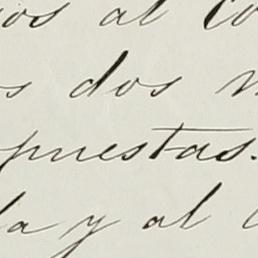 os al co
s dos
puestas.
la y al